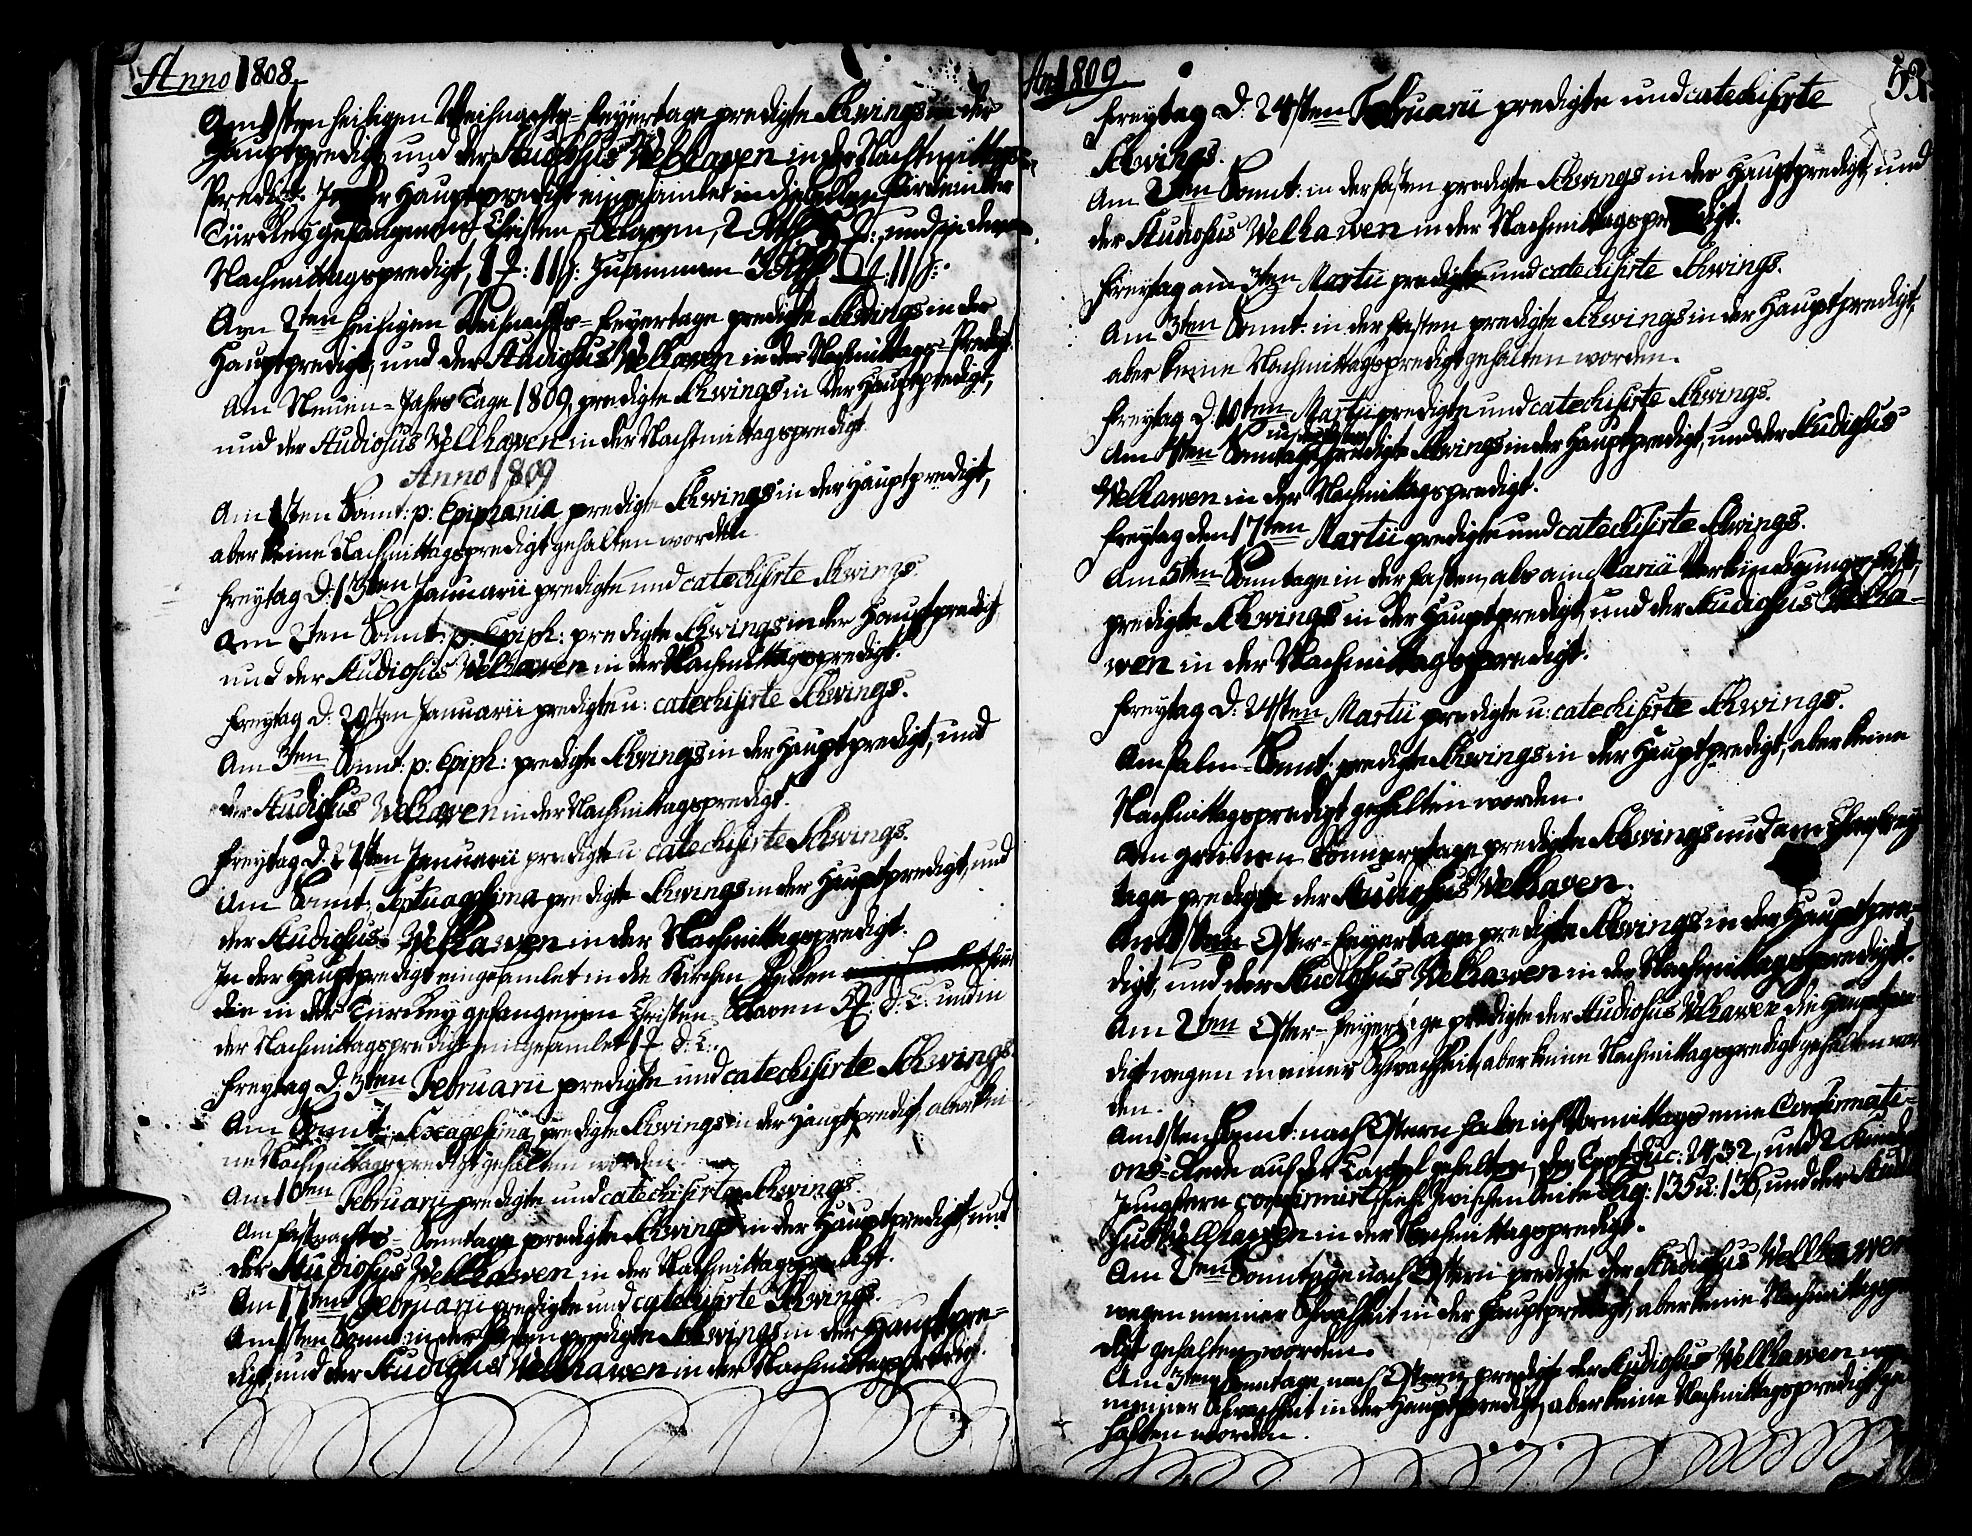 Anno 1808.
Am 1sten heiligen Weihnachts-Feyertage predigte Schwings in der
Hauptpredigt, und der Studiosus Velhawen in der Nachmittags-
Predigt. In der Hauptpredigt eingesamlet in die für die in der
Türckey gefangenen Christen-Sclaven, 2 und in der
Nachmittagspredigt, 1 11 ß: Zusammen 3 11 ß.
Am 2ten heiligen Weihnachts-Feyertage predigte Schwings in der
Hauptpredigt, und der Studiosus Velhawen in der Nachmittags-Predigt.
Am Neuen-Jahrs Tage 1809, predigte Schwings in der Hauptpredigt,
und der Studiosus Velhaven in der Nachmittagspredigt.
Anno 1809
Am 1sten Sonnt: p: Epiphania predigte Schwings in der Hauptpredigt,
aber keine Nachmittagspredigt gehalten worden.
Freytag d: 13ten Januarii predigte und catechisirte Schwings.
Am 2ten Sonnt: p: Epiph: predigte Schwings in der Hauptpredigt
und der Studiosus Velhawen in der Nachmittagspredigt.
Freytag d: 20sten Januarii predigte u: catechisirte Schwings.
Am 3ten Sonnt: p: Epiph: predigte Schwings in der Hauptpredigt, und
der Studiosus Velhaven in der Nachmittagspredigt.
Freytag d: 27sten Januarii predigte u: catechisirte Schwings.
Am Sonnt: Septuagesima predigte Schwings in der Hauptpredigt, und
der Studiosus Velhawen in der Nachmittagspredigt.
In der Hauptpredigt eingesamlet in die Kirchen für
die in der Türckey gefangenen Christen-Sclaven d. C. und in
der Nachmittagspredigt eingesamlet 1 d. C.
Freytag d: 3ten Februarii predigte und catechisirte Schwings.
Am Sonnt: Sexagesima predigte Schwings in der Hauptpredigt, aber kei
ne Nachmittagspredigt gehalten worden.
Am 10ten Februarii predigte und catechisirte Schwings.
Am Fastnachts-Sonntage predigte Schwings in der Hauptpredigt, und
der Studiosus Velhawen in der Nachmittagspredigt.
Am 17ten Februarii predigte und catechisirte Schwings.
Am 1sten Sonnt: in der Fasten predigte Schwings in der Hauptpre-
digt, und der Studiosus Velhawen in der Nachmittagspredigt.
An 1809
53
Freytag d: 24sten Februarii predigte und catechisirte
Schwings.
Am 2ten Sonnt: in der Fasten predigte Schwings in der Hauptpredigt, und
der Studiosus Velhawen in der Nachmittagspredigt.
Freytag am 3ten Martii predigte und catechisirte Schwings.
Am 3ten Sonnt: in der Fasten predigte Schwings in der Hauptpredigt,
aber keine Nachmittagspredigt gehalten worden.
Freytag d: 10ten Martii predigte und catechisirte Schwings.
Am 4ten Sonntage in der Fasten predigte Schwings in der Hauptpredigt, und der Studiosus
Velhawen in der Nachmittagspredigt.
Freytag den 17ten Martii predigte und catechisirte Schwings.
Am 5ten Sonntage in der Fasten, als am Mariä Verkündigungs Feste,
predigte Schwings in der Hauptpredigt, und der Studiosus Velha-
wen in der Nachmittagspredigt.
Freytag d: 24sten Martii predigte u: catechisirte Schwings.
Am Palm-Sonnt: predigte Schwings in der Hauptpredigt, aber keine
Nachmittagspredigt gehalten worden.
Am grünen Donnerstage predigte Schwings und am Charfrey-
tage predigte der Studiosus Velhaven.
Am 1sten Oster-Feyertage predigte Schwings in der Hauptpre-
digt, und der Studiosus Velhawen in der Nachmittagspredigt.
Am 2ten Oster-Feyertage predigte der Studiosus Velhawen die Hauptpre-
digt wegen meiner Schwachheit, aber keine Nachmittagspredigt gehalten wor
den.
Am 1sten Sonnt: nach Ostern habe ich Vormittags eine Confirmati-
ons-Rede auf der Cantzel gehalten, den Text Luc: 24,32, und 2
Jungfern confirmirt, siehe zwischen Seite Pag: 135 u: 136, und der Studio
sus Velhawen in der Nachmittagspredigt.
Am 2ten Sonntage nach Ostern predigte der Studiosus Velhawen
wegen meiner Schwachheit in der Hauptpredigt, aber keine Nachmittagspre
digt gehalten worden.
Am 3ten Sonntage nach Ostern predigte der Studiosus Velhawen wegen
meiner Schwachheit in der Hauptpredigt, aber keine Nachmittagspredigt ge
halten worden.